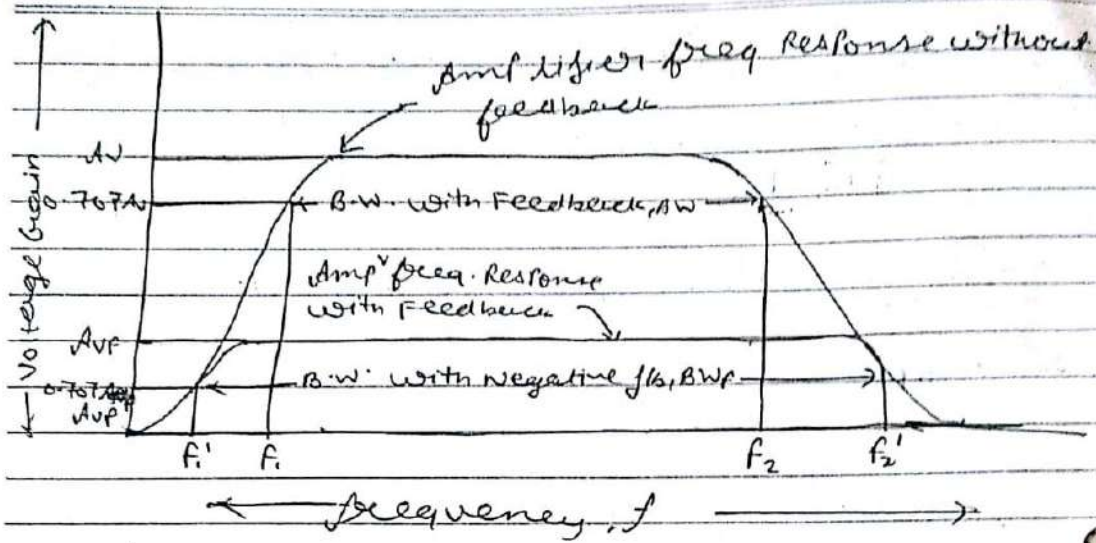 Amplifier freq Response without
feedback
Voltage Gain
Av
0.707Av
B.W. with Feedback, BW
Ampr freq. Response
with Feedback
Avf
0.707
Avf
B.W. with Negative f/b, BWf
f1' f1 f2 f2'
frequency, f